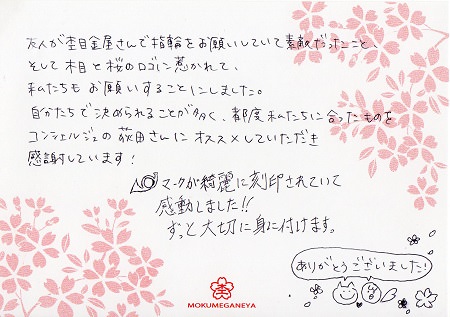 友人が杢目金屋さんで指輪をお願いしていて素敵だったこと、
そして木目と桜のロゴに惹かれて、
私たちもお願いすることにしました。
自分たちで決められることが多く、都度私たちに合ったものを
コンシェルジュの荻田さんにオススメしていただき
感謝しています!
マークが綺麗に刻印されていて
感動しました!!
ずっと大切に身に付けます。
ありがとうございました!
MOKUMEGANEYA